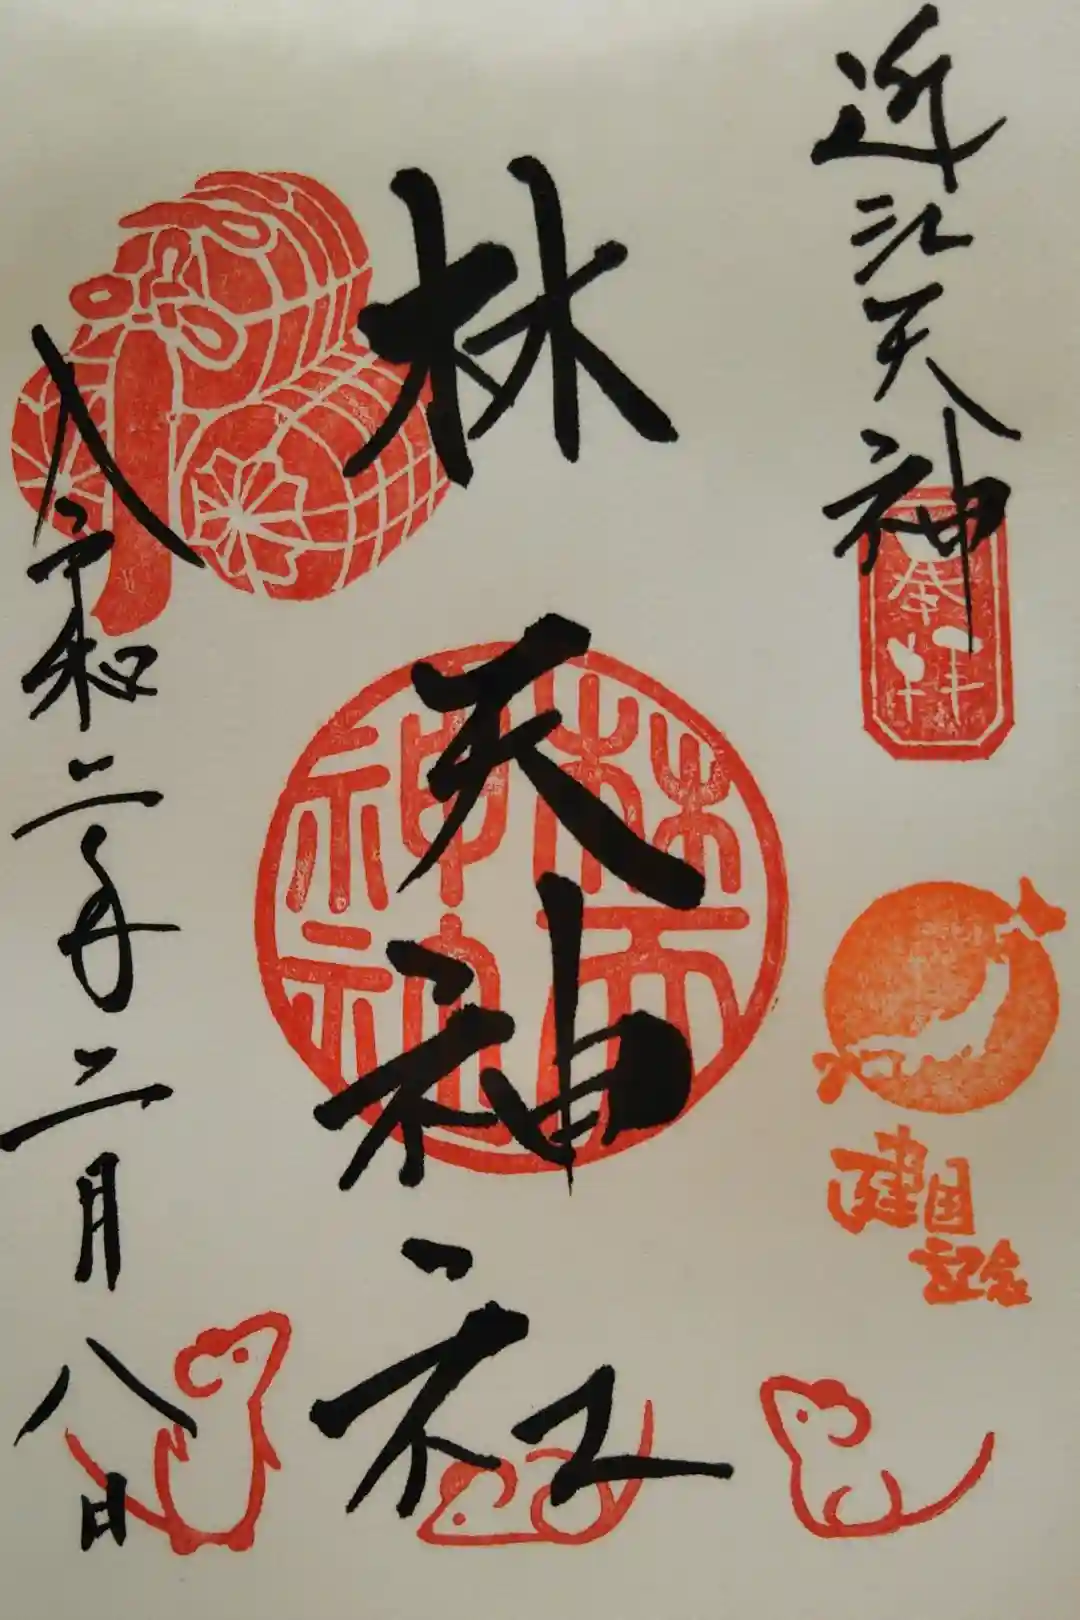 近江天神
奉拝
建国
記念
林天神社
林天
神社
令和二年二月八日